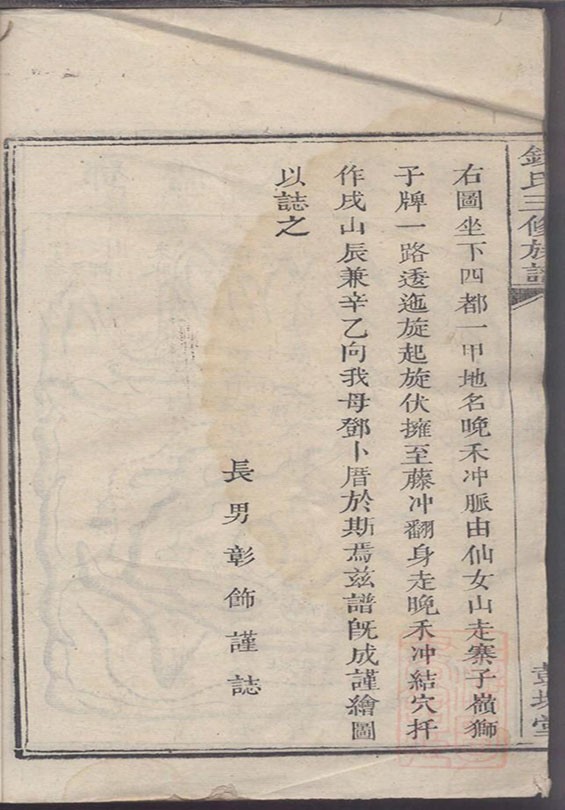 氏三修族譜
右圖坐下四都一甲地名晚禾冲脈由仙女山走寨子嶺獅
子牌一路透迤旋起旋伏擁至藤冲翻身走晚禾冲結穴扦
作戌山辰兼辛乙向我母鄧卜厝於斯焉兹譜旣成謹繪圖
以誌之
長男彰飾謹誌